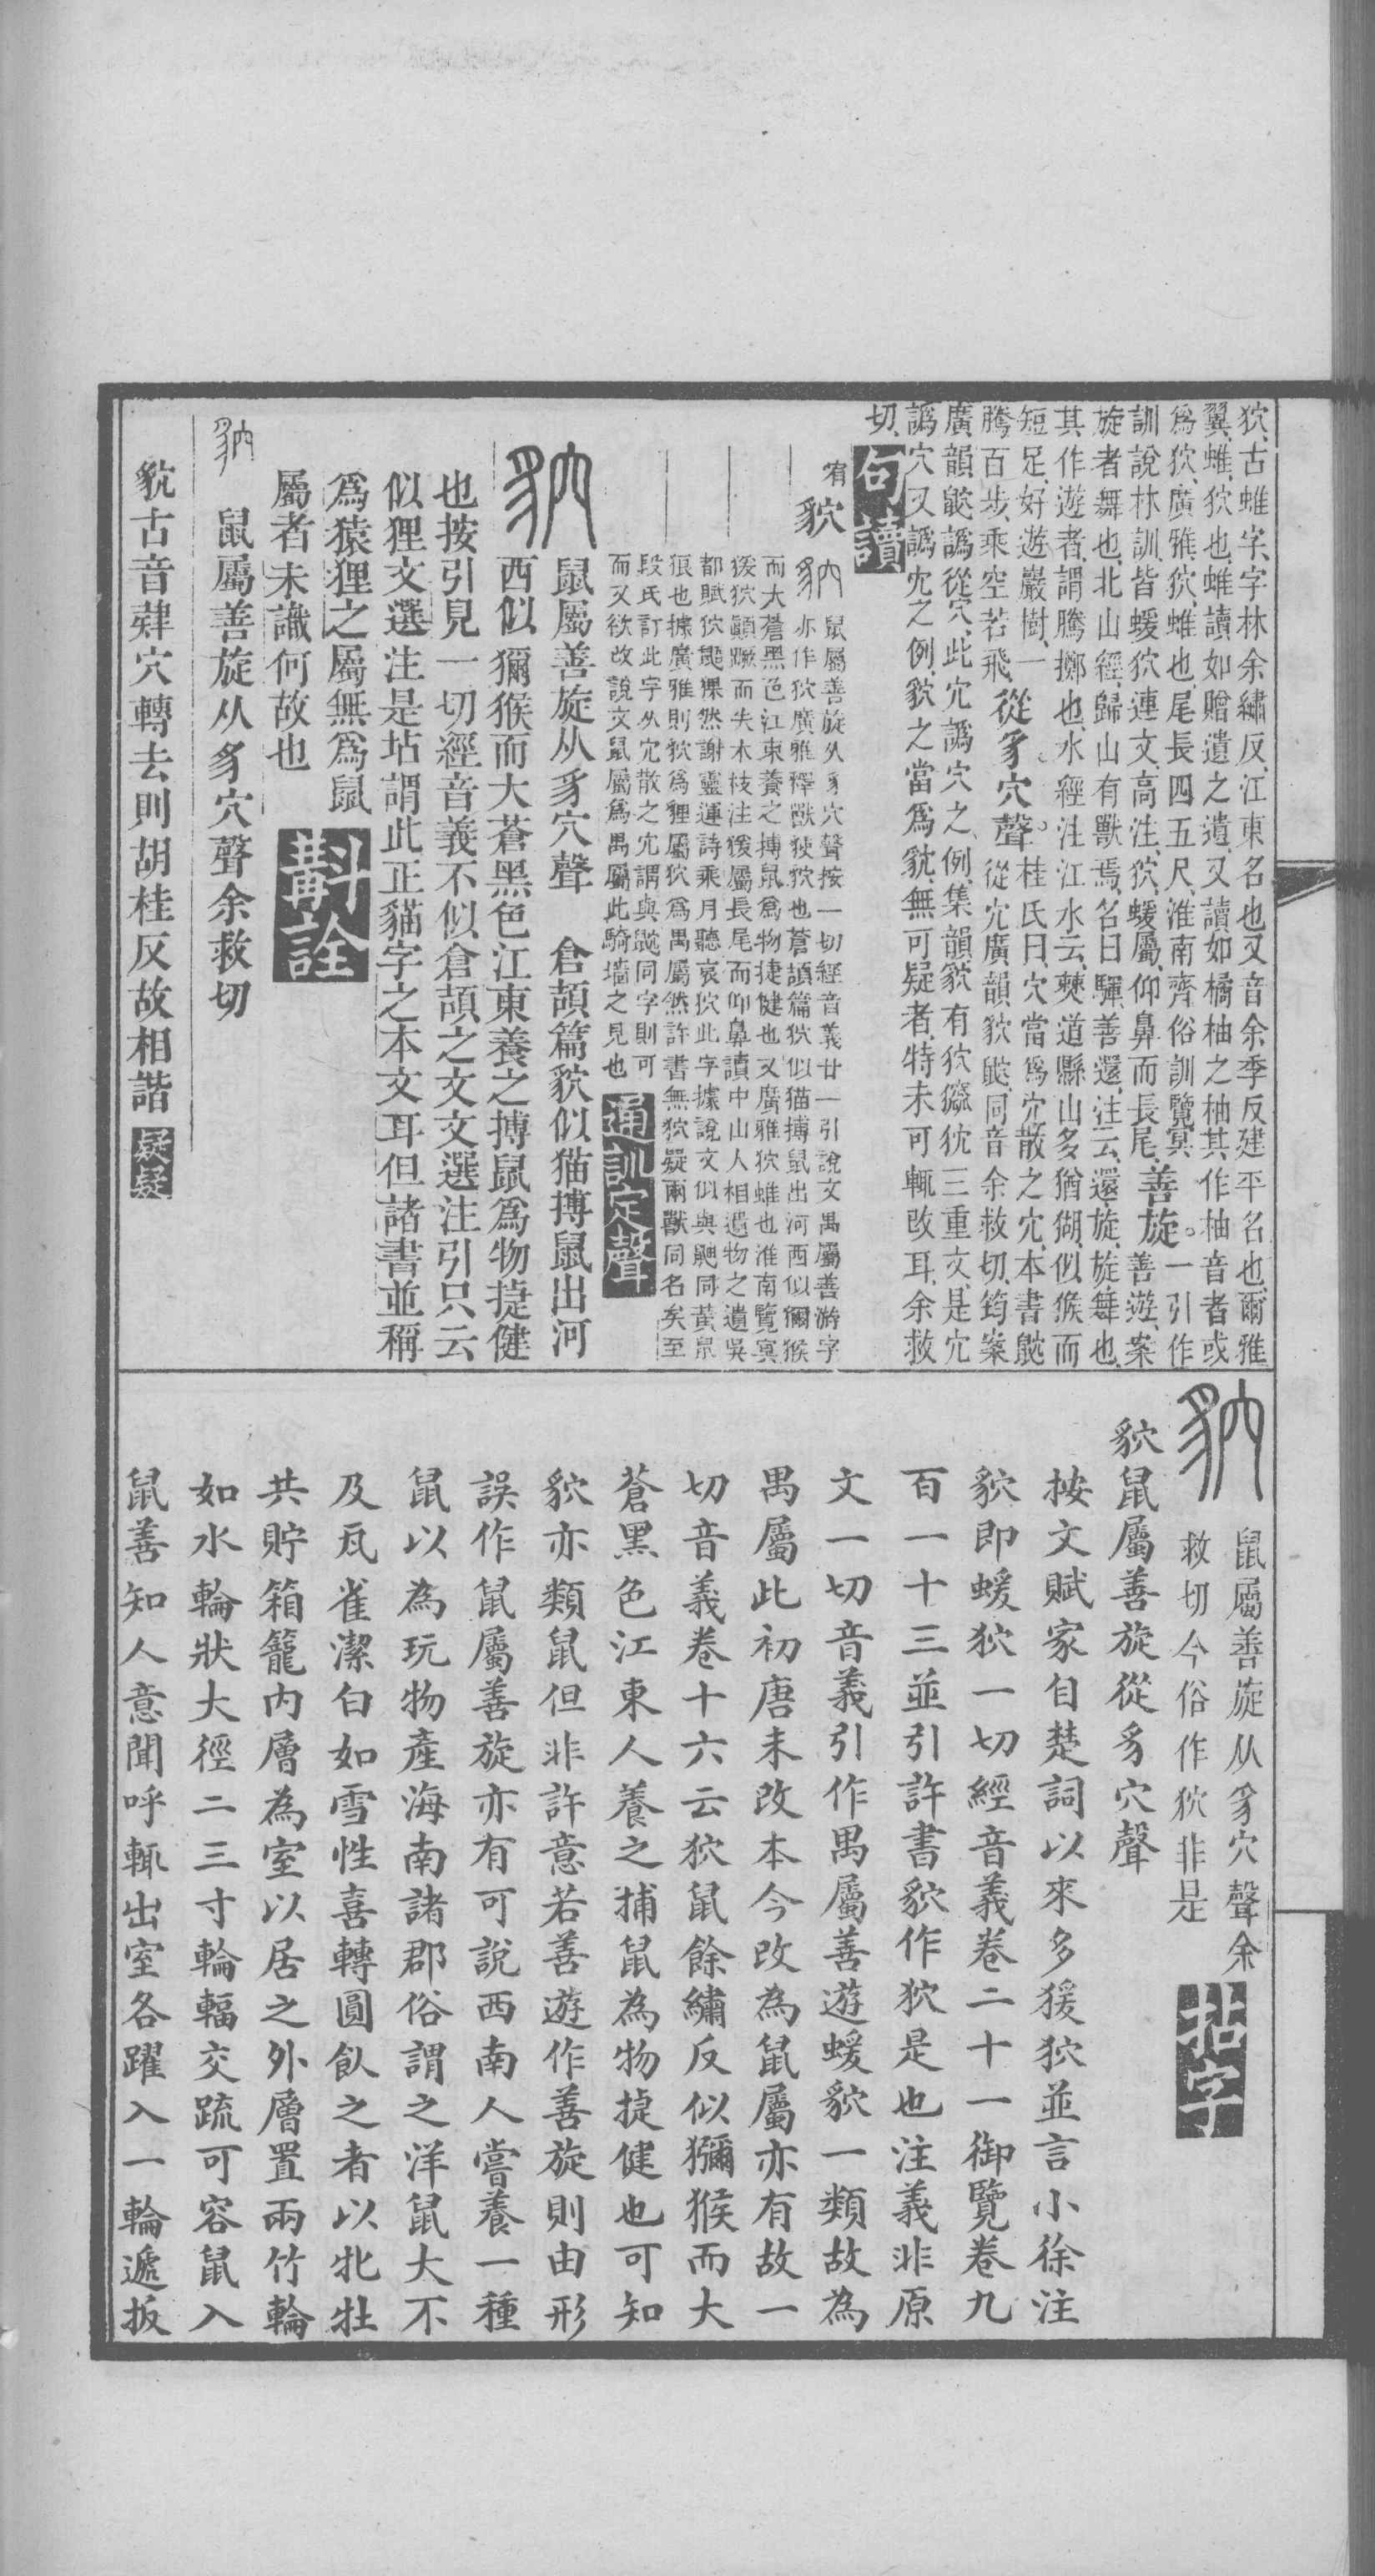 狖、古蜼字、字林余繡反、江東名也、又音余季反、建平名也、爾雅
翼、蜼、狖也、蜼讀如贈遺之遺、又讀如橘柚之柚、其作柚音者、或
爲狖、廣雅、狖、蜼也、尾長四五尺、淮南齊俗訓、覽冥
訓、說林訓、皆蝯狖連文、高注、狖、蝯屬、仰鼻而長尾、善旋。一引作
旋者舞也、北山經、歸山有獸焉、名曰驒、善還、注云、還旋、旋舞也、善遊、案
其作遊者、謂騰擲也、水經注、江水云、僰道縣山多猶猢、似猴而
短足、好遊巖樹、一
騰百步、乘空若飛、從豸穴聲。桂氏曰、穴當爲宂散之宂、本書䶆
從宂、廣韻狖䶆同音余救切、筠案
廣韻䶆譌從穴、此宂譌穴之例、集韻貁有狖貁狖三重文、是宂
譌穴又譌宂之例、貁之當爲㺃、無可疑者、特未可輒改耳、余救
切、
句讀
宥 貁
鼠屬善旋从豸穴聲按一切經音義廿一引說文禺屬善游字
亦作狖廣雅釋獸㹨狖也蒼頡篇狖似猫搏鼠出河西似獼猴
而大蒼黑色江東養之搏鼠爲物捷健也又廣雅狖蜼也淮南覽冥
猨狖顚蹶而失木枝注猨屬長尾而仰鼻讀中山人相遺物之遺吳
都賦狖鼯猓然謝靈運詩乘月聽哀狖此字據說文似與䶉同黃鼠
狼也據廣雅則狖爲貍屬狖爲禺屬然許書無狖疑兩獸同名矣至
段氏訂此字从宂散之宂謂與䶆同字則可
而又欲改說文鼠屬爲禺屬此騎墻之見也
通訓定聲
鼠屬善旋从豸穴聲 倉頡篇貁似猫搏鼠出河
西似獼猴而大蒼黑色江東養之搏鼠爲物捷健
也按引見一切經音義不似倉頡之文文選注引只云
似狸文選注是坫謂此正貓字之本文耳但諸書並稱
爲猿狸之屬無爲鼠
屬者未識何故也
斠詮
鼠屬善旋从豸穴聲余救切
貁古音肄穴轉去則胡桂反故相諧
疑疑
鼠屬善旋从豸穴聲余
救切今俗作狖非是
拈字
貁鼠屬善旋從豸穴聲
按文賦家自楚詞以來多猨狖並言小徐注
貁即蝯狖一切經音義卷二十一御覽卷九
百一十三並引許書貁作狖是也注義非原
文一切音義引作禺屬善遊蝯貁一類故為
禺屬此初唐未改本今改為鼠屬亦有故一
切音義卷十六云狖鼠餘繡反似獼猴而大
蒼黑色江東人養之捕鼠為物捷健也可知
貁亦類鼠但非許意若善遊作善旋則由形
誤作鼠屬善旋亦有可說西南人嘗養一種
鼠以為玩物產海南諸郡俗謂之洋鼠大不
及瓦雀潔白如雪性喜轉圓飤之者以牝牡
共貯箱籠內層為室以居之外層置兩竹輪
如水輪狀大徑二三寸輪輻交疏可容鼠入
鼠善知人意聞呼輒出室各躍入一輪遞扳